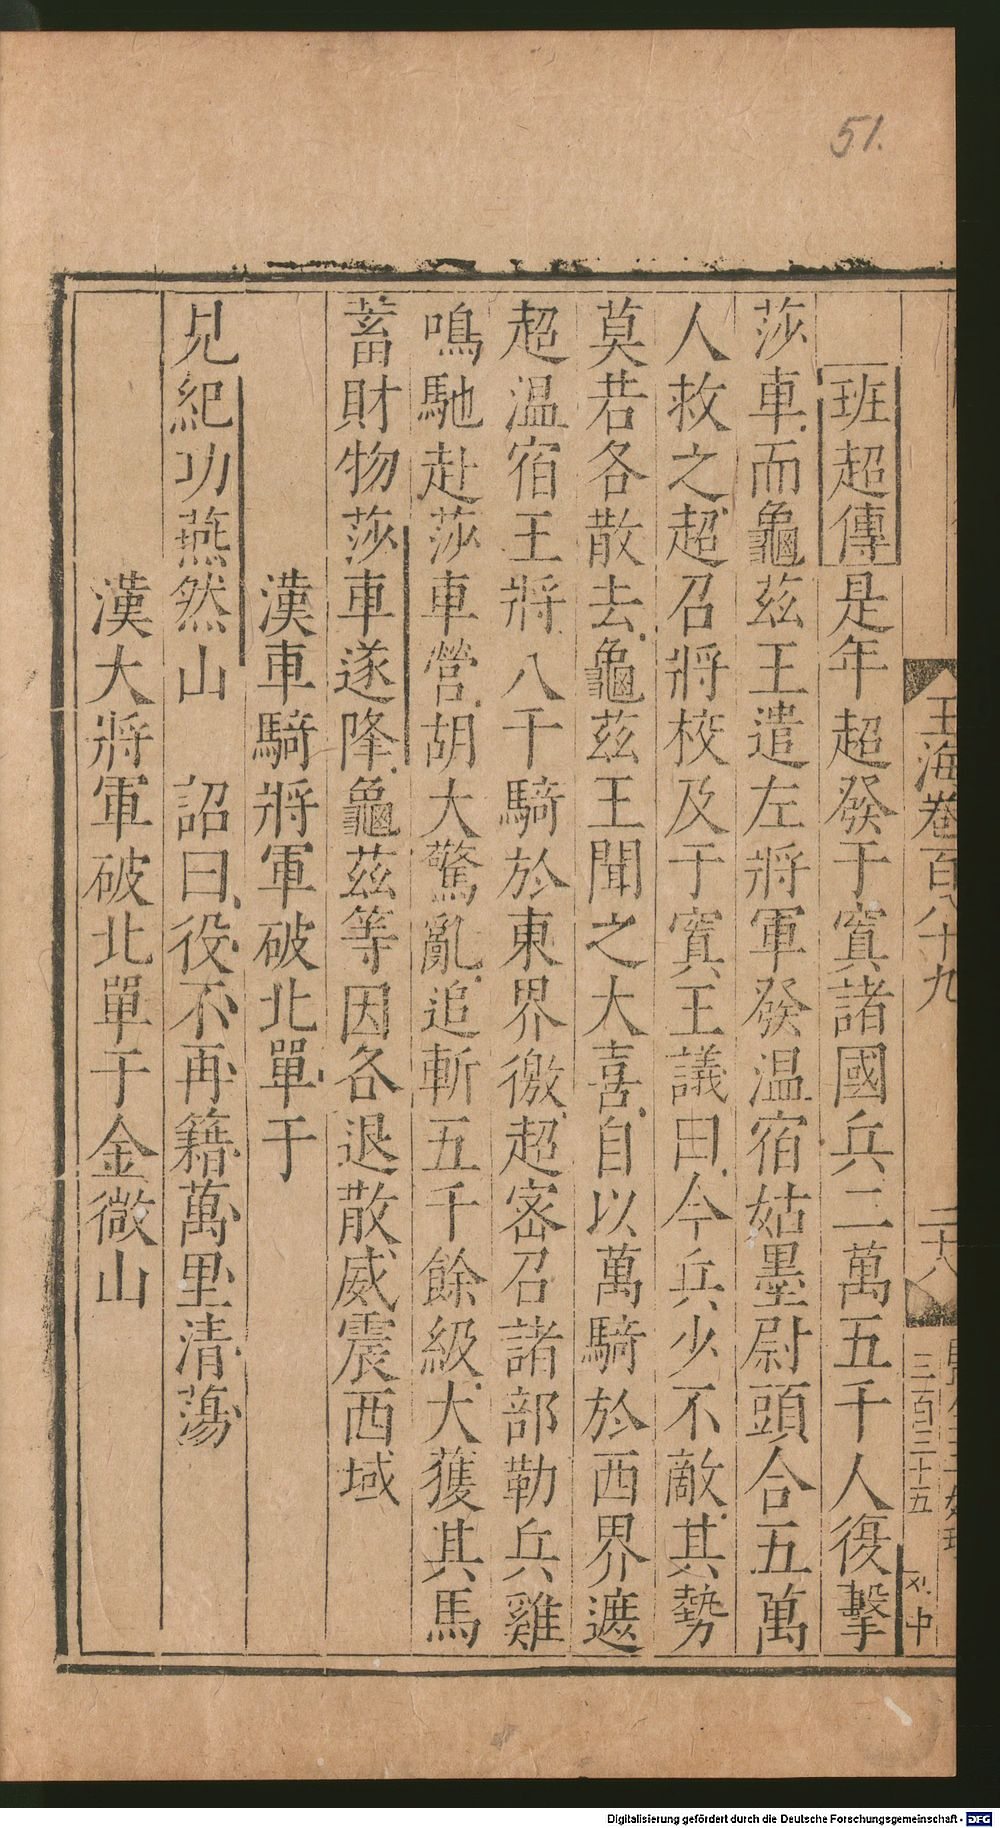 51.
玉海卷百八十九
二十八
三百三十五
班超傳是年超發于窴諸國兵二萬五千人復擊
莎車而龜茲王遣左將軍發温宿姑墨尉頭合五萬
人救之超召將校及于窴王議曰今兵少不敵其勢
莫若各散去龜茲王聞之大喜自以萬騎於西界遮
超温宿王將八千騎於東界徼超密召諸部勒兵雞
鳴馳赴莎車營胡大驚亂追斬五千餘級大獲其馬
蓄財物莎車遂降龜茲等因各退散威震西域
漢車騎將軍破北單于
見紀功燕然山 詔曰役不再籍萬里清蕩
漢大將軍破北單于金微山
Digitalisierung gefördert durch die Deutsche Forschungsgemeinschaft - DFG